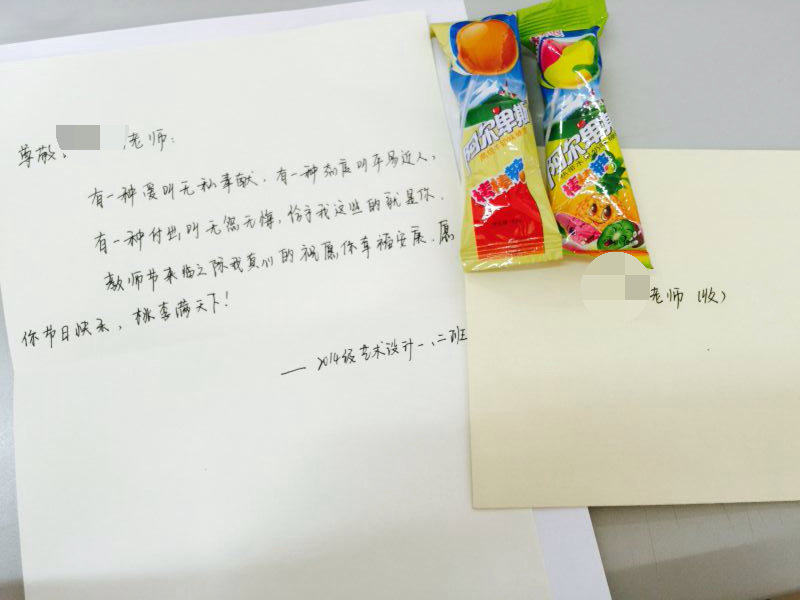 尊敬 老师：
有一种爱叫无私奉献，有一种态度叫平易近人，
有一种付出叫无怨无悔，给予我这些的就是你，
教师节来临之际我真心的祝愿你幸福安康，愿
你节日快乐，桃李满天下！
— 2014级艺术设计一、二班
阿尔卑斯
棒棒糖
阿尔卑斯
棒棒糖
老师（收）